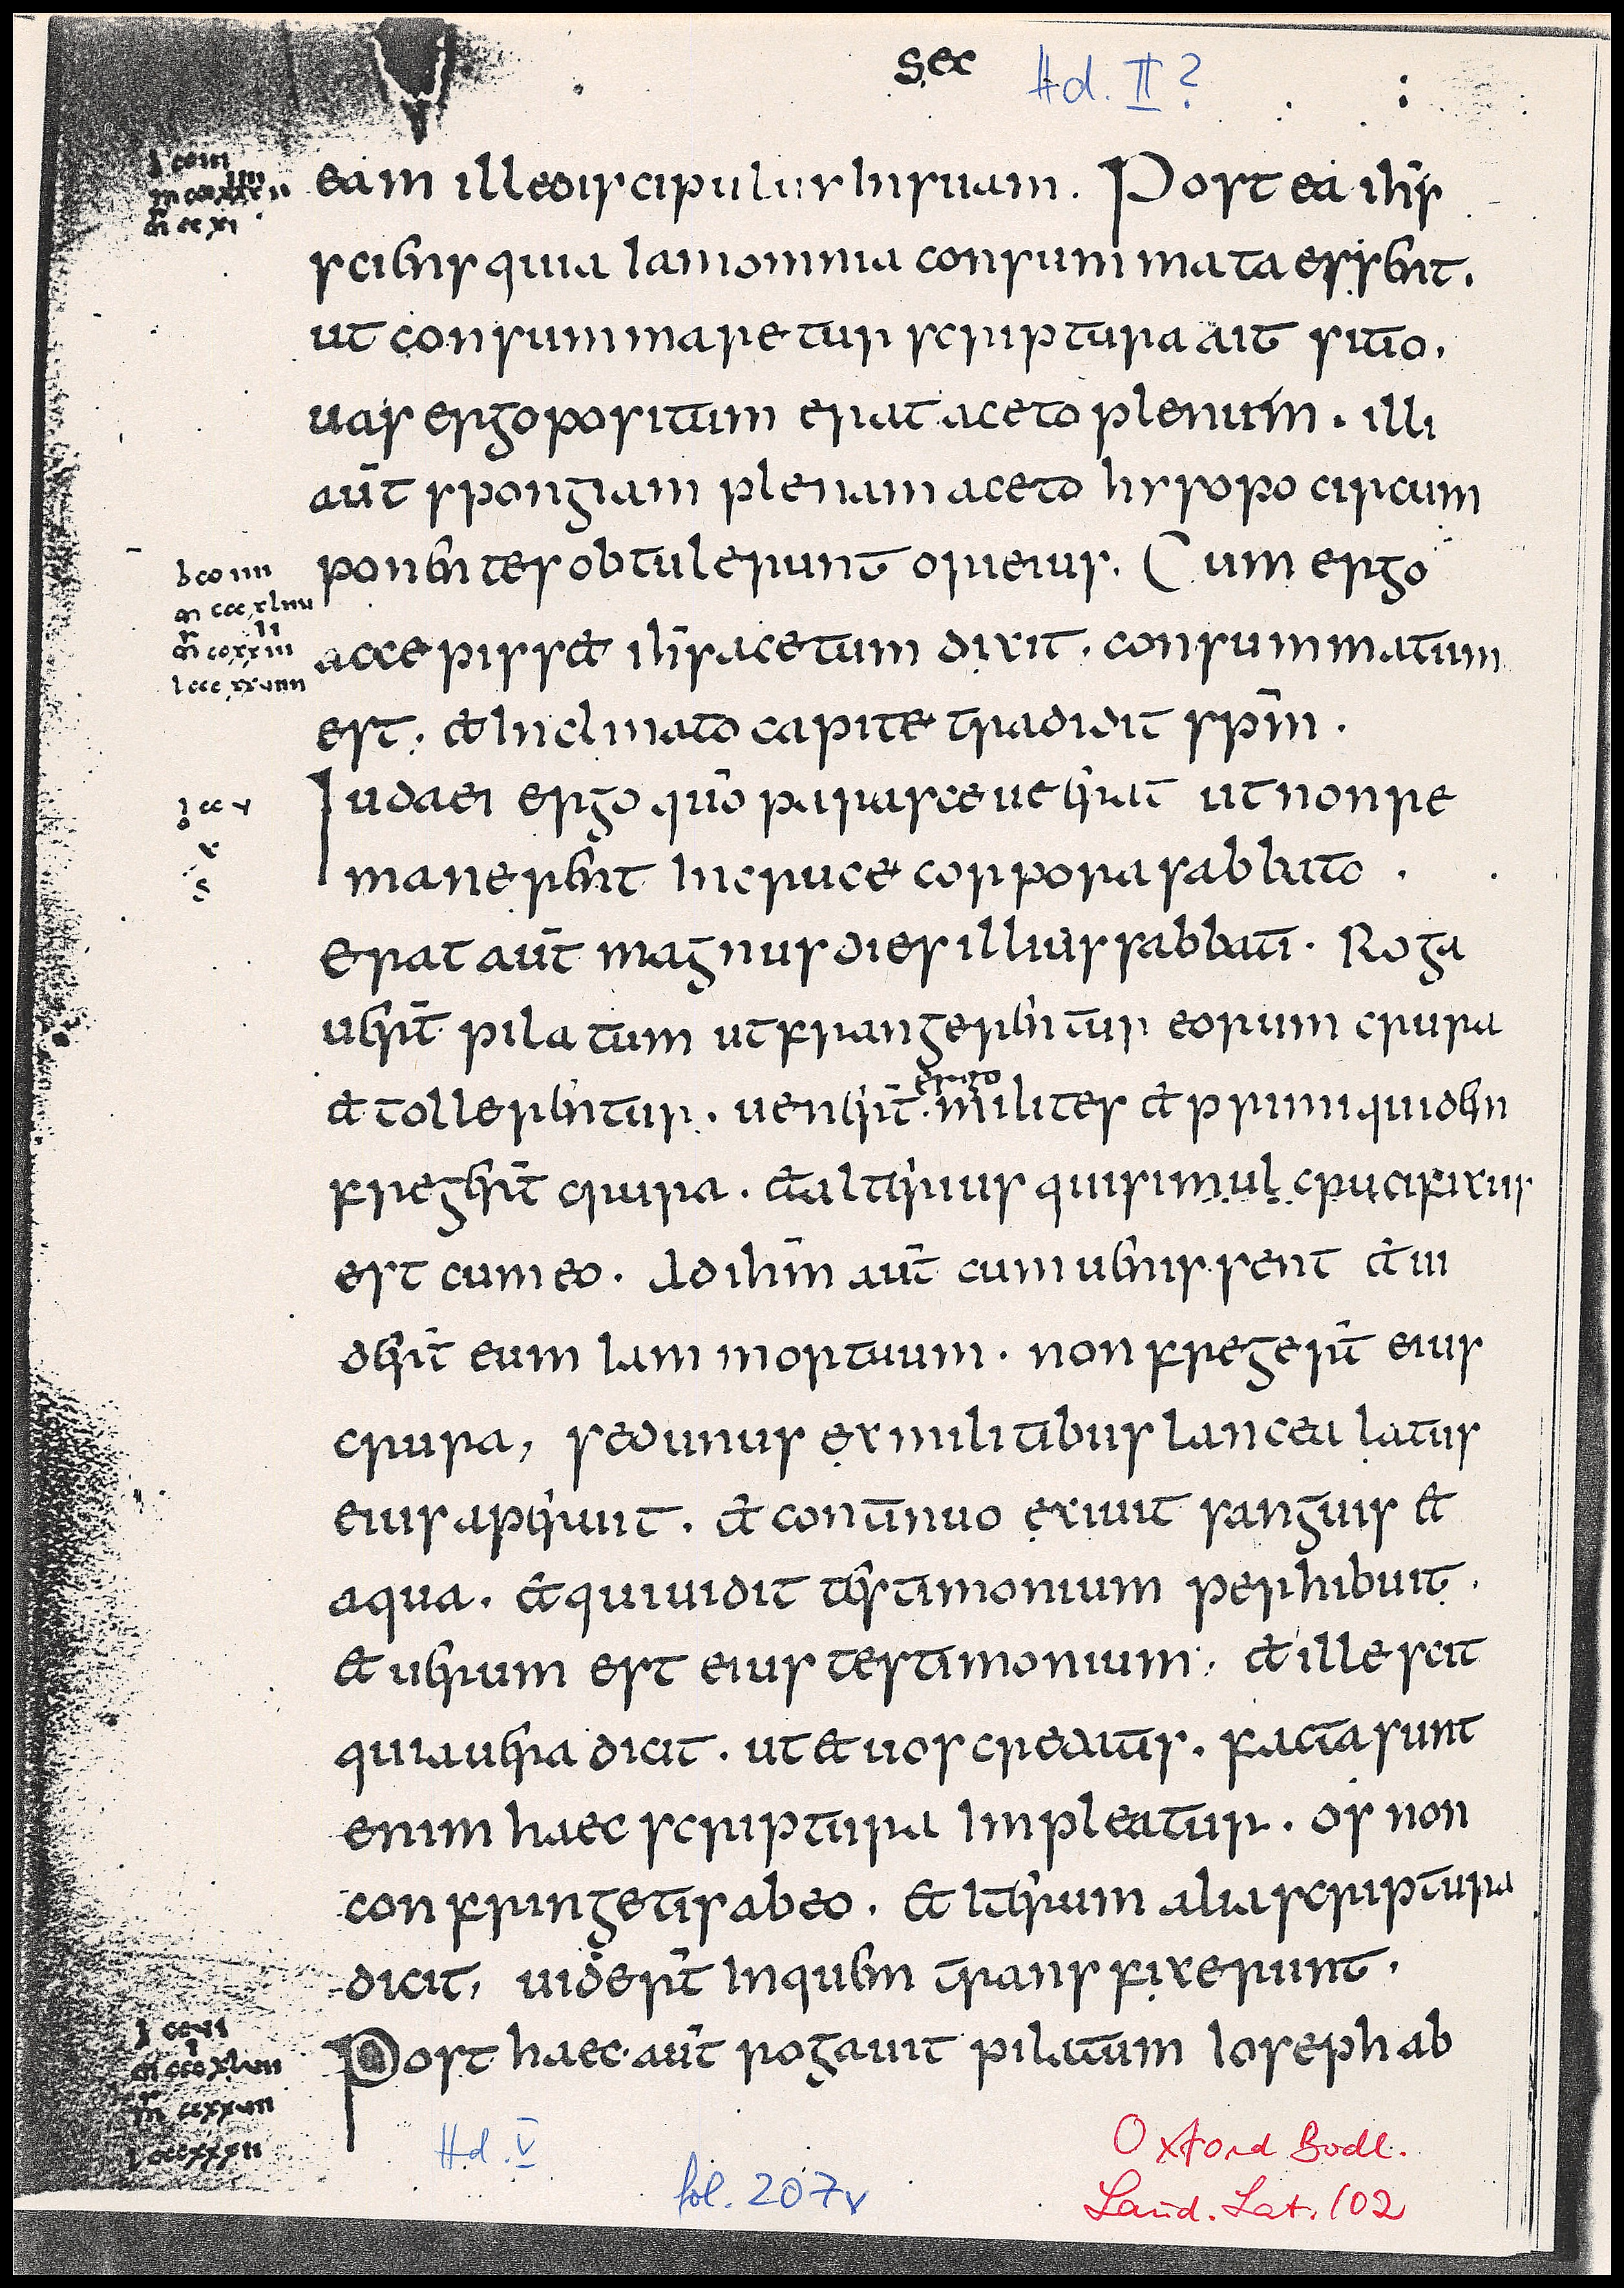 sec Hd. II?
eam ille discipulus in suam. Post ea ihs
sciens quia iam omnia consummata essent.
ut consummaretur scriptura ait sitio.
uas ergo positum erat aceto plenum. illi
aut̄ spongiam plenam aceto hysopo circum
ponentes obtulerunt ori eius. Cum ergo
accepisset ihs acetum dixit. consummatum
est. et inclinato capite tradidit spm̄.
Iudaei ergo quō parasceue erat ut non re
manerent in cruce corpora sabbato.
Erat aut̄ magnus dies illius sabbati. Roga
uerūt pilatum ut frangerentur eorum crura
et tollerentur. uenerūt ergo milites et primi quidem
fregerūt crura. et alterius qui simul crucifixus
est cum eo. Ad ihm̄ aut̄ cum uenissent et ui
derūt eum iam mortuum. non fregerūt eius
crura, sed unus ex militibus lancea latus
eius aperuit. et continuo exiuit sanguis et
aqua. et qui uidit testimonium perhibuit.
et uerum est eius testimonium, et ille scit
quia uera dicit. ut et uos credatis. facta sunt
enim haec scriptura impleatur. os non
confringetis ab eo. Et iterum alia scriptura
dicit, uiderūt in quem transfixerunt.
Post haec aut̄ rogauit pilatum ioseph ab
Hd. V
fol. 207v
Oxford Bodl.
Laud. Lat. 102